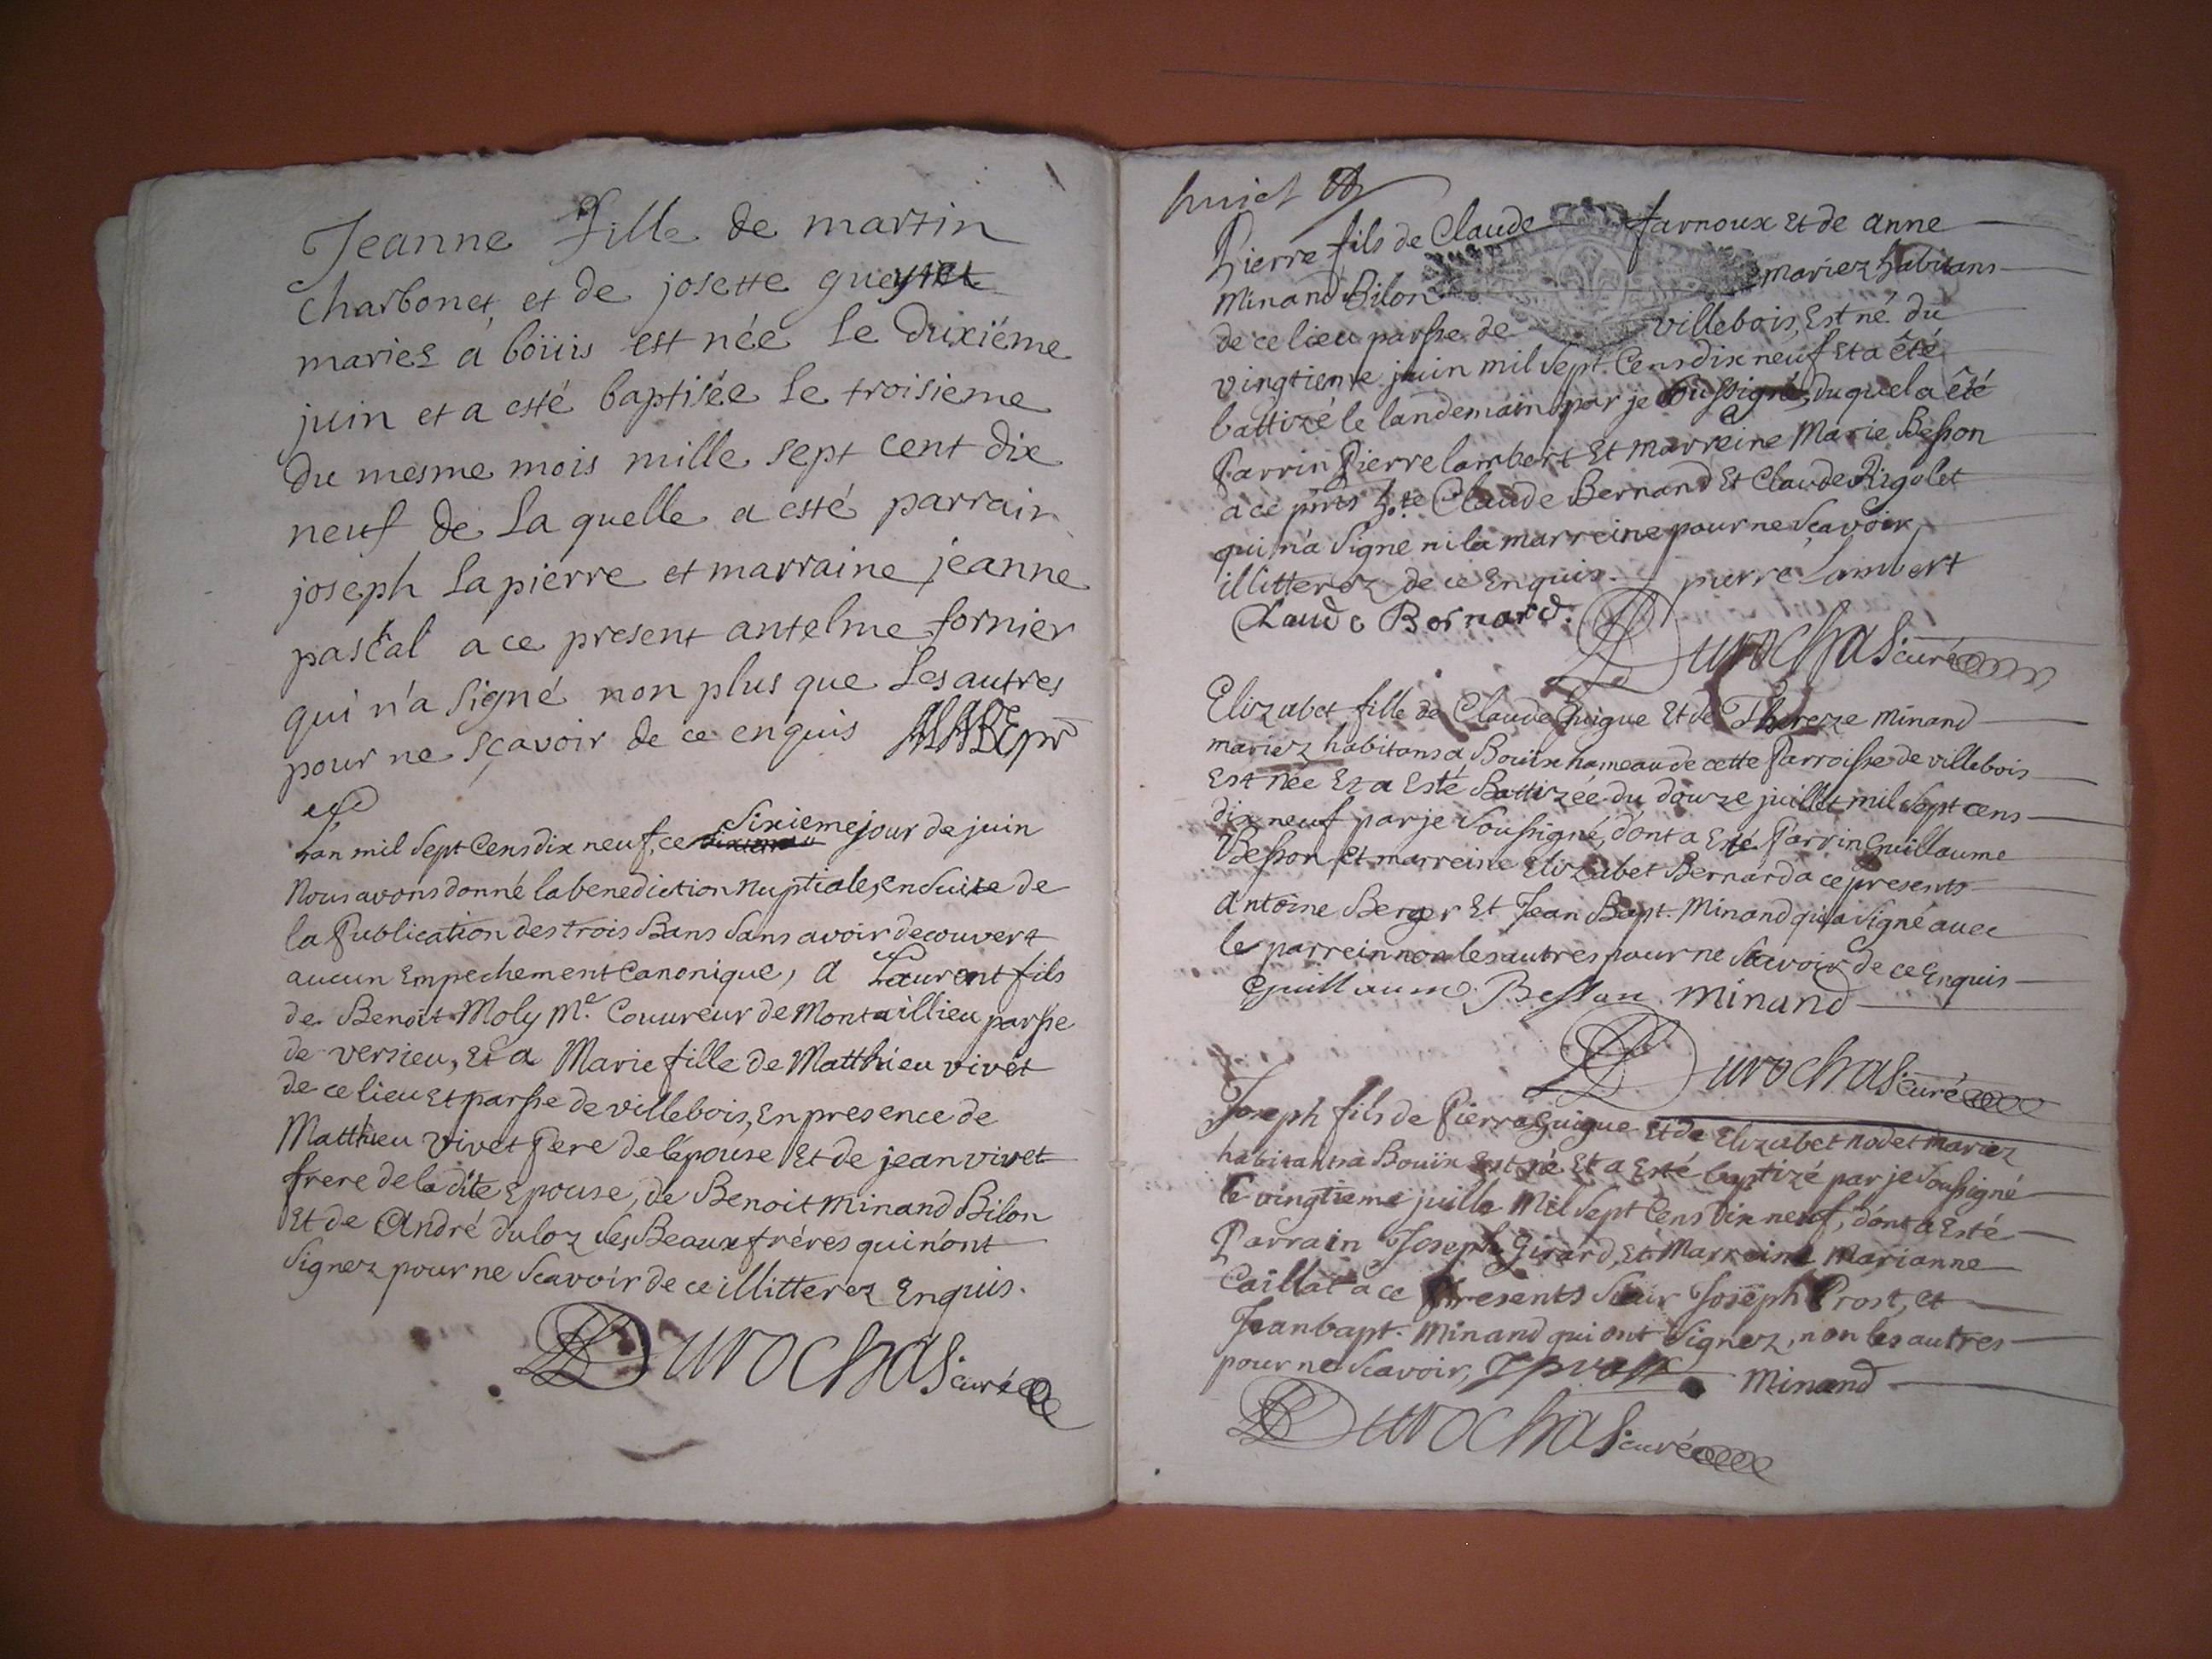 Jeanne fille de martin
charbonet, et de josette gueynet
mariez a boüis est née le duixiéme
juin et a esté baptisée le troisieme
du mesme mois mille sept cent dix
neuf de la quelle a esté parrain
joseph la pierre et marraine jeanne
pascal a ce present antelme fornier
qui n'a signé non plus que les autres
pour ne sçavoir de ce enquis
Sixieme
L'an mil sept Cens dix neuf, ce jour de juin
Nous avons donné la benediction nuptiale, en suite de
la Publication des trois Bans sans avoir decouvert
aucun Empechement Canonique, a Laurent fils
de Benoit Moly Me. Couvreur de Montaillieu parsse
de versieu, Et a Marie fille de Matthieu vivet
de ce lieu Et parsse de villebois, En presence de
Matthieu vivet Pere de l'épouse Et de jean vivet
frere de la dite Epouse, de Benoit Minand Bilon
Et de André duloz ses Beaux fréres qui n'ont
signez pour ne Scavoir de ce illitterez Enquis.
Durochas. curé
huict
Pierre fils de Claude farnoux Et de anne
Minand Bilon mariez habitans
de ce lieu parsse de villebois, Est né du
vingtieme juin mil sept. Cens dix neuf Et a êté
battizé le landemain par je soussigné, duquel a êté
Parrin Pierre lambert Et marreine Marie Besson
a ce pnts h.te Claude Bernand Et Claude Rigolet
qui n'a Signe ni la marreine pour ne Scavoir,
illitterez de ce Enquis. pierre Lambert
Claude Bernard.
Durochas. curé
Elizabet fille de Claude Guigue Et de Thereze Minand
mariez habitans a Bouix hameau de cette Parroisse de villebois
Est née Et a Esté Battizée du douze juillet mil sept cens
dix neuf par je soussigné, dont a Esté Parrin Guillaume
Besson Et marreine Elizabet Bernard a ce presents
Antoine Berger Et Jean Bapt. Minand qui a signé avec
le parrein non les autres pour ne Scavoir de ce Enquis
Guillaume Besson Minand
Durochas. curé
Joseph fils de Pierre Guigue Et de Elizabet nodet mariez
habitants a Bouix Est né Et a Esté baptizé par je soussigné
le vingtieme juille Mil sept Cens Dix neuf, dont a Esté
Parrain Joseph Girard, Et Marreine Marianne
Caillat a ce presents Sieur Joseph Prost, et
Jean bapt. Minand qui ont signez, non les autres
pour ne Scavoir, J prost Minand
Durochas. curé